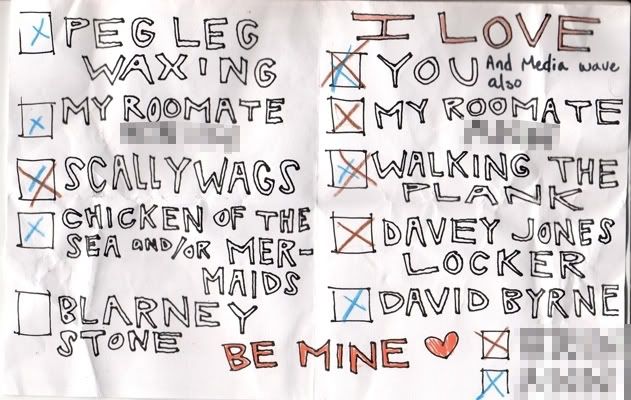 PEG LEG
WAXING
MY ROOMATE
SCALLYWAGS
CHICKEN OF THE
SEA AND/OR MER-
MAIDS
BLARNEY
STONE
I LOVE
YOU And Media wave
also
MY ROOMATE
WALKING THE
PLANK
DAVEY JONES
LOCKER
DAVID BYRNE
BE MINE